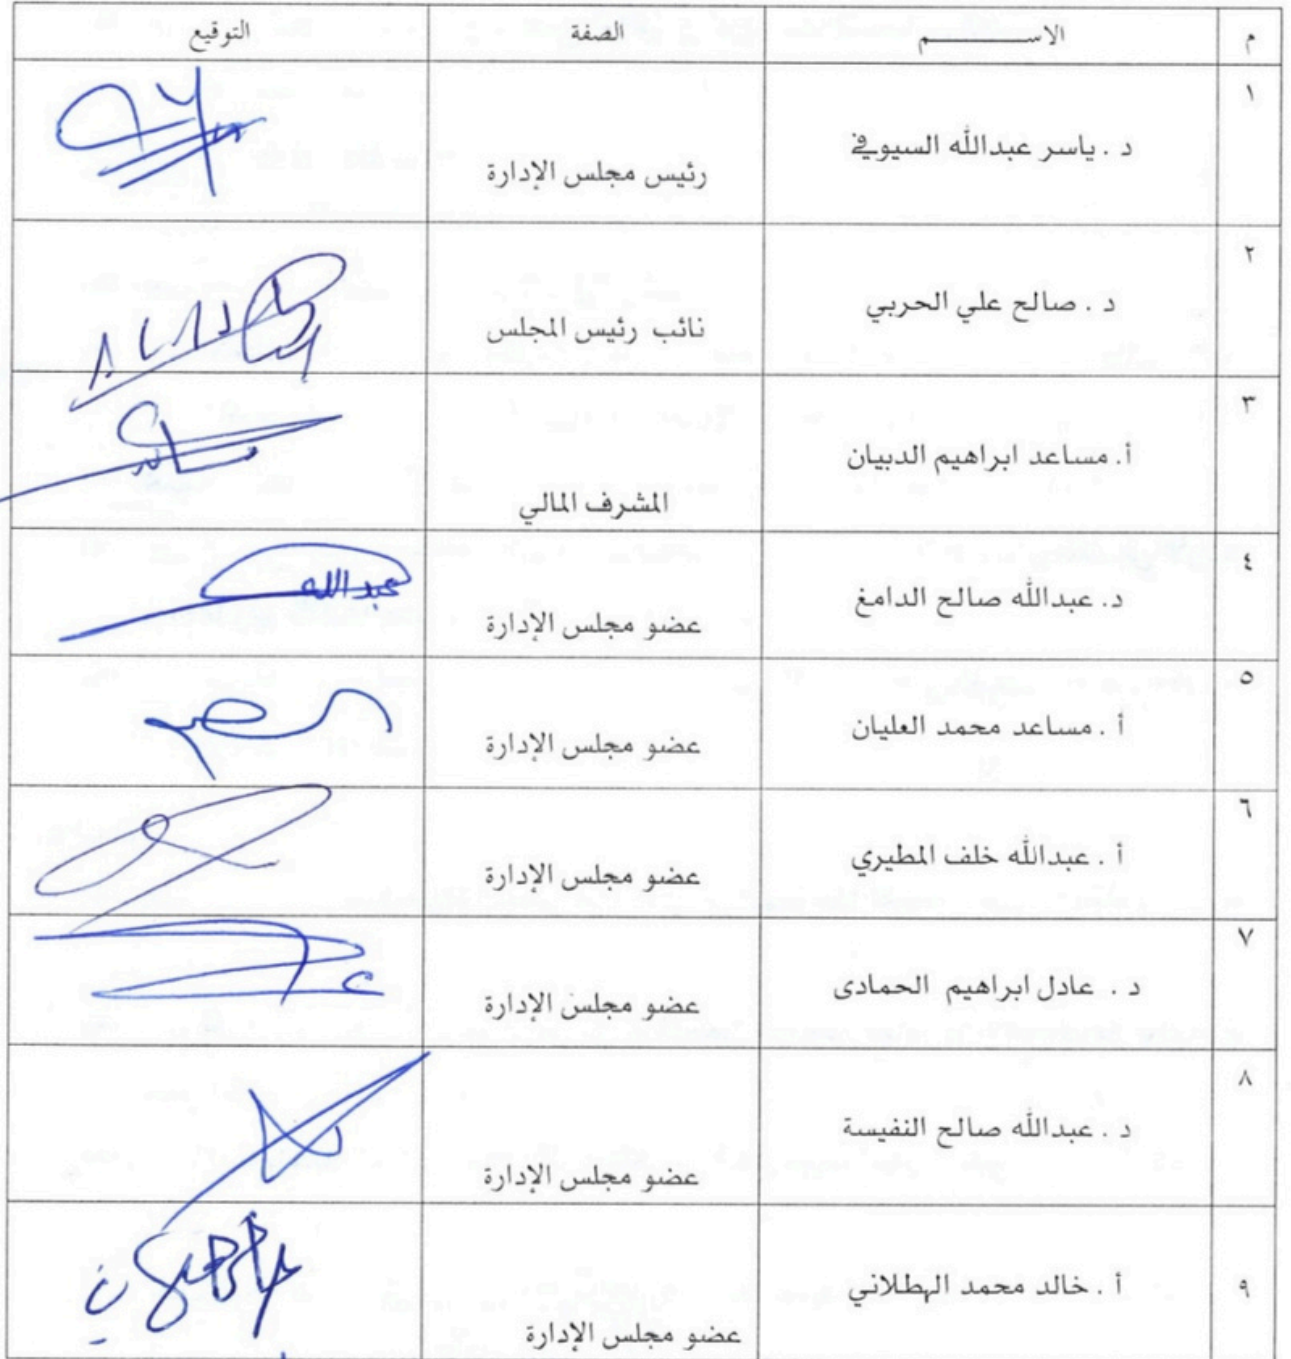 م الاســـــــم الصفة التوقيع
١ د . ياسر عبدالله السيوفي رئيس مجلس الإدارة
٢ د . صالح علي الحربي نائب رئيس المجلس
٣ أ. مساعد ابراهيم الدبيان المشرف المالي
٤ د. عبدالله صالح الدامغ عضو مجلس الإدارة عبدالله
٥ أ . مساعد محمد العليان عضو مجلس الإدارة
٦ أ . عبدالله خلف المطيري عضو مجلس الإدارة
٧ د . عادل ابراهيم الحمادى عضو مجلس الإدارة
٨ د . عبدالله صالح النفيسة عضو مجلس الإدارة
٩ أ . خالد محمد الهطلاني عضو مجلس الإدارة